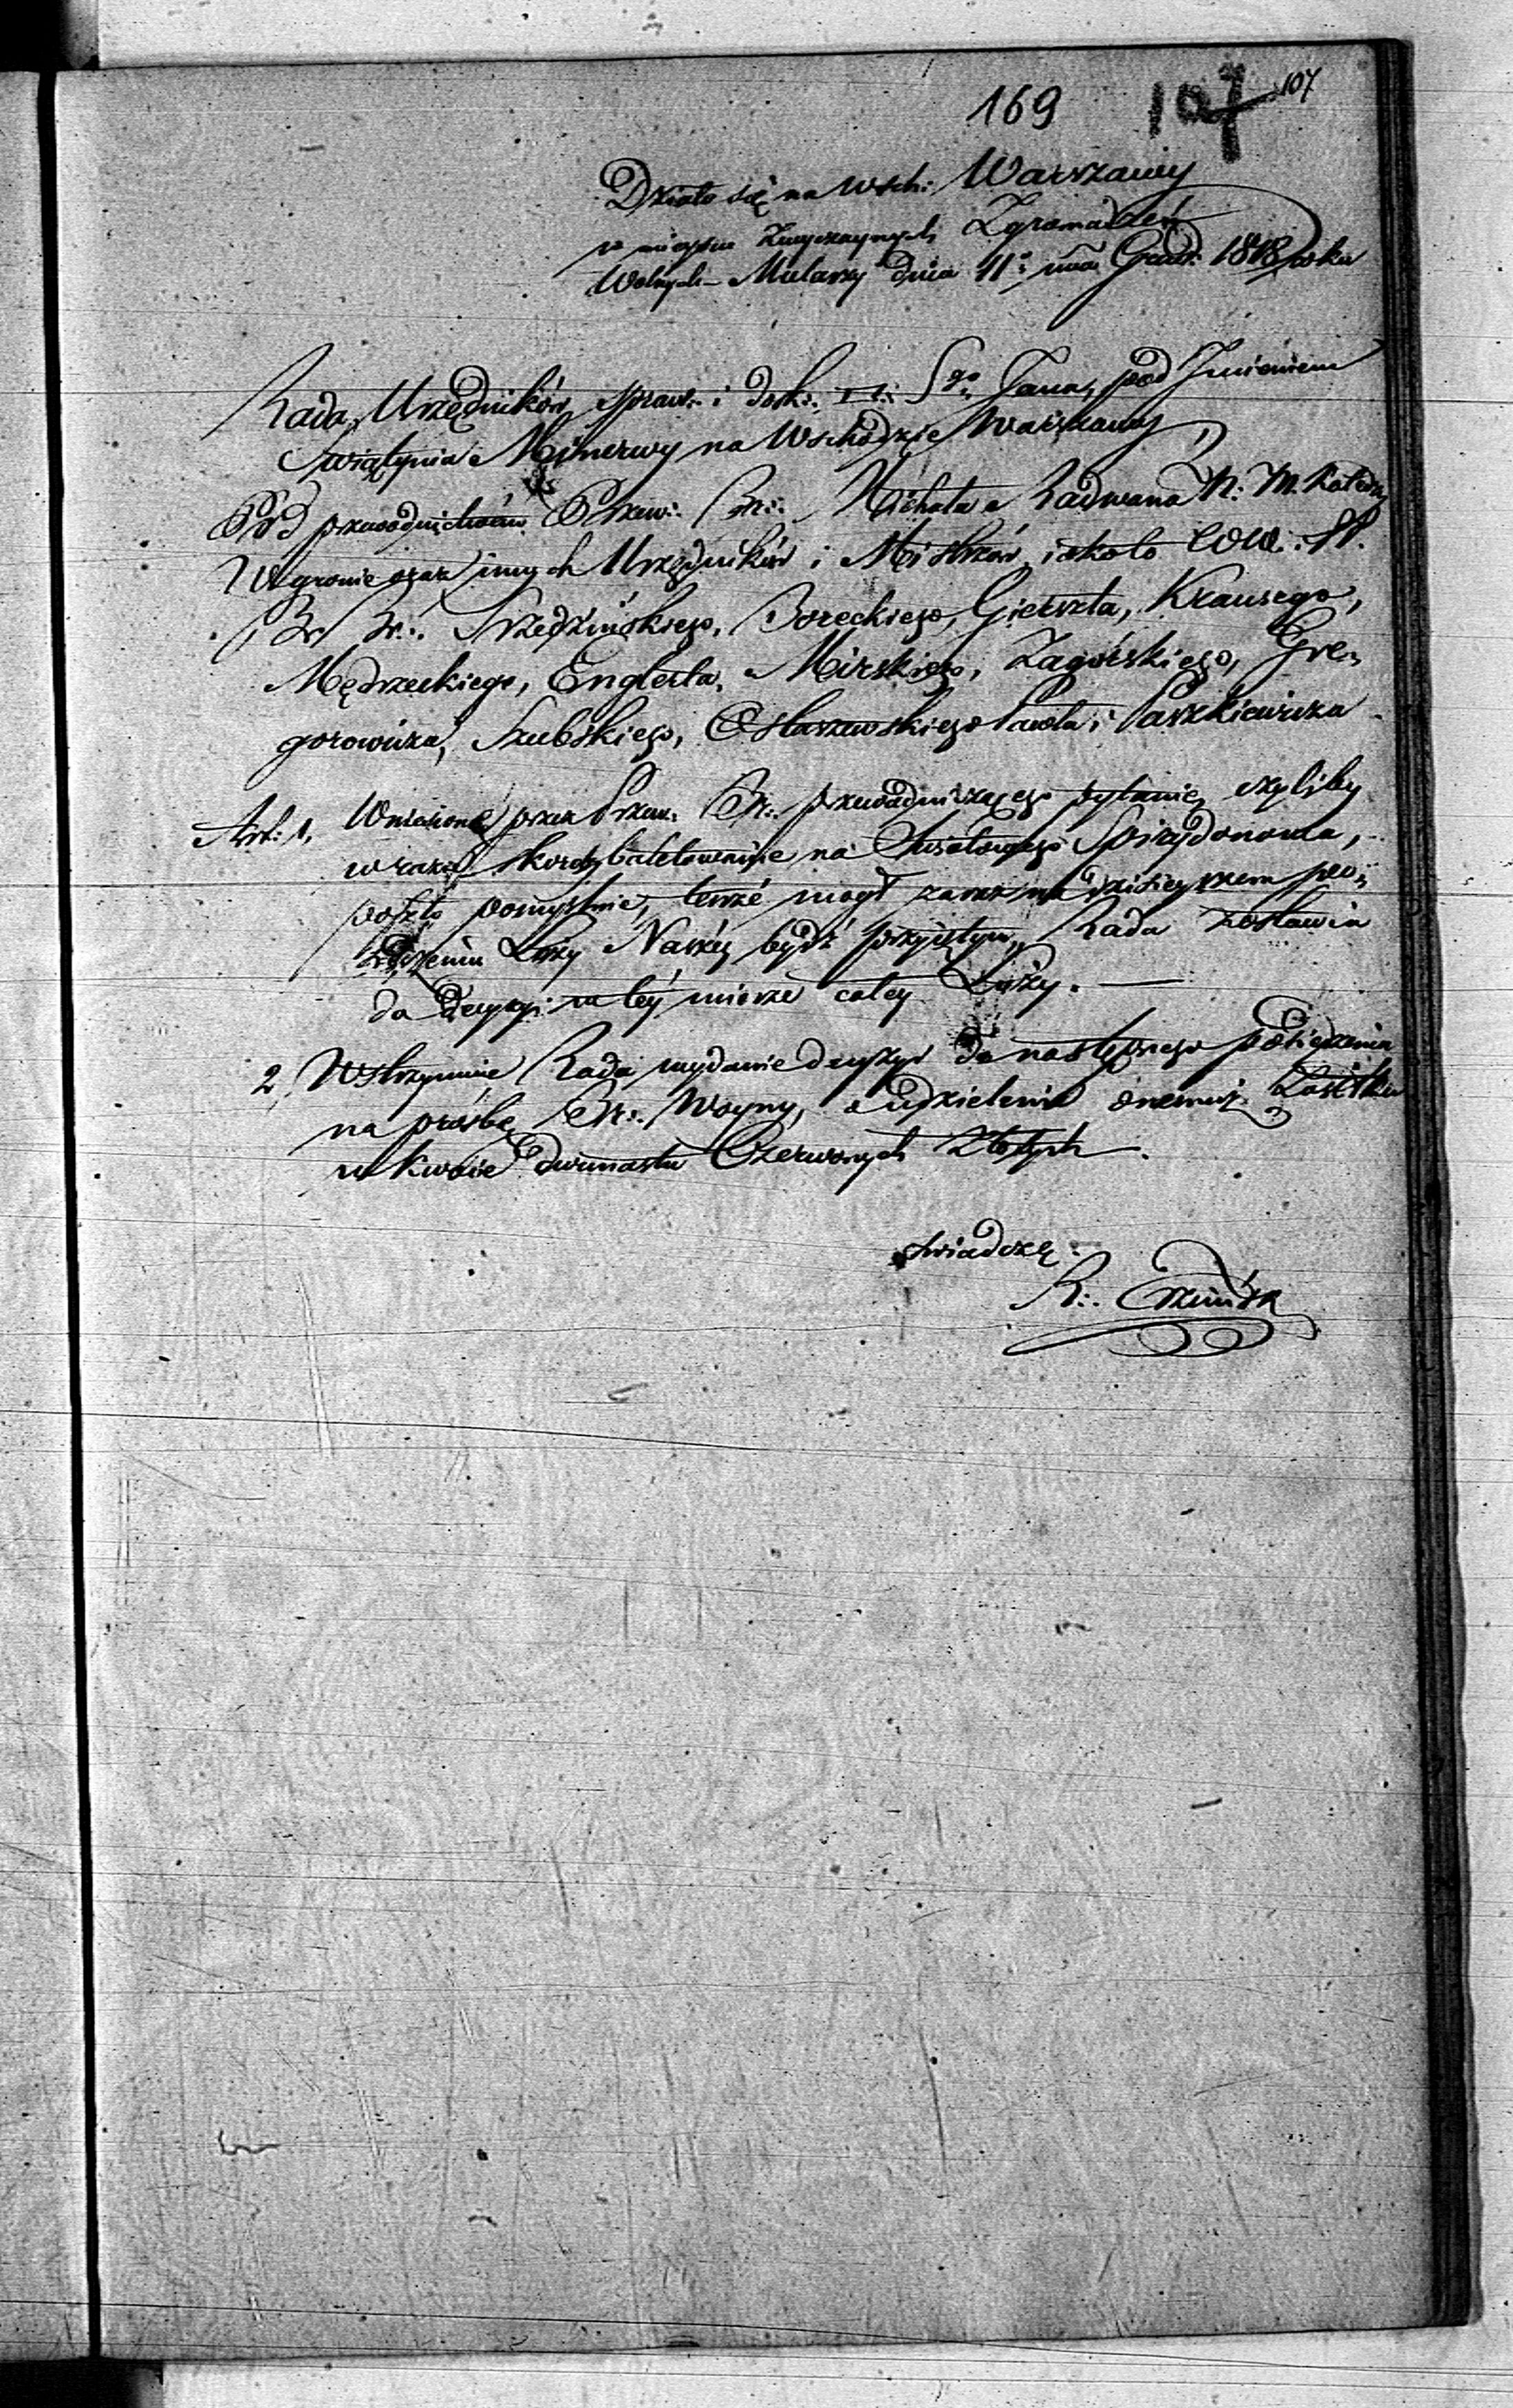 169 107 107
Działo się na Wsch: Warszawy
w miejscu Zwyczaynych Zgromadzeń
Wolnych Mularzy dnia 11: Grud: 1818 roku
Rada Urzędników spraw: i dosk: Sgo Jana, pod Jmieniem
Swiątynia Minerwy na Wschodzie Warszawy,
Pod przewodnictwem Przew: Br: Michała Radwana N: M. Katedry
W gronie oraz innych Urzędników i Mistrzów, iakoto
Br Br: Srzedzińskiego, Boreckiego, Gierszta, Krausego,
Mędrzeckiego, Englerta, Mirskiego, Zagórskiego, Gre,
gorowicza, Szubskiego, Ostaszewskiego Pawła i Paszkiewicza
Art: 1, Wniesione przez Przew: Br: przewodniczącego pytanie, czyliby
w razie skoroby balotowanie na Swiatowego Spirydonowa,
poszło pomyślnie, tenże mógł zaraz na dzisieyszem po,
siedzeniu Loży Naszey bydź przyiętym, Rada zostawia
do Decyzyi w tey mierze całey Loży. —
2, Wstrzymuie Rada wydanie decyzyi do następnego posiedzenia
na prośbę Br: Woyny, o udzielenie onemuż Zasiłku
w kwocie dwunastu Czerwonych Złotych.
Swiadczę: